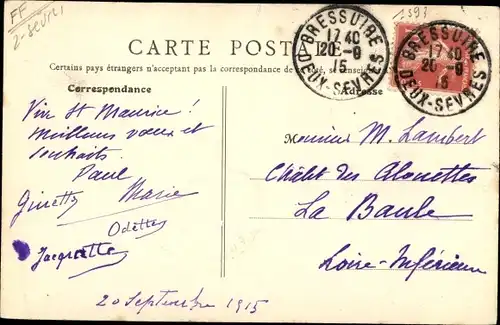 FF
2-Sevres
1393
CARTE POSTALE
BRESSUIRE
17 40
20-9
15
DEUX-SEVRES
BRESSUIRE
17 40
20-9
15
DEUX-SEVRES
Certains pays étrangers n'acceptant pas la correspondance de se renseigner
Correspondance
Adresse
Vive St Maurice!
Meilleurs vœux et
souhaits.
Paul
Ginette Marie
Odette
Jacquette
20 Septembre 1915
Monsieur M. Lambert
Châlet des Alouettes
La Baule
Loire-Inférieure